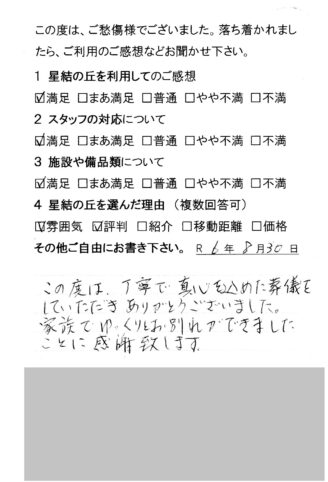 この度は、ご愁傷様でございました。落ち着かれまし
たら、ご利用のご感想などお聞かせ下さい。
1 星結の丘を利用してのご感想
☑満足 □まあ満足 □普通 □やや不満 □不満
2 スタッフの対応について
☑満足 □まあ満足 □普通 □やや不満 □不満
3 施設や備品類について
☑満足 □まあ満足 □普通 □やや不満 □不満
4 星結の丘を選んだ理由 (複数回答可)
☑雰囲気 ☑評判 □紹介 □移動距離 □価格
その他ご自由にお書き下さい。 R 6年 8月30日
この度は、丁寧で真心を込めた葬儀を
していただきありがとうございました。
家族でゆっくりとお別れができました
ことに感謝致します。